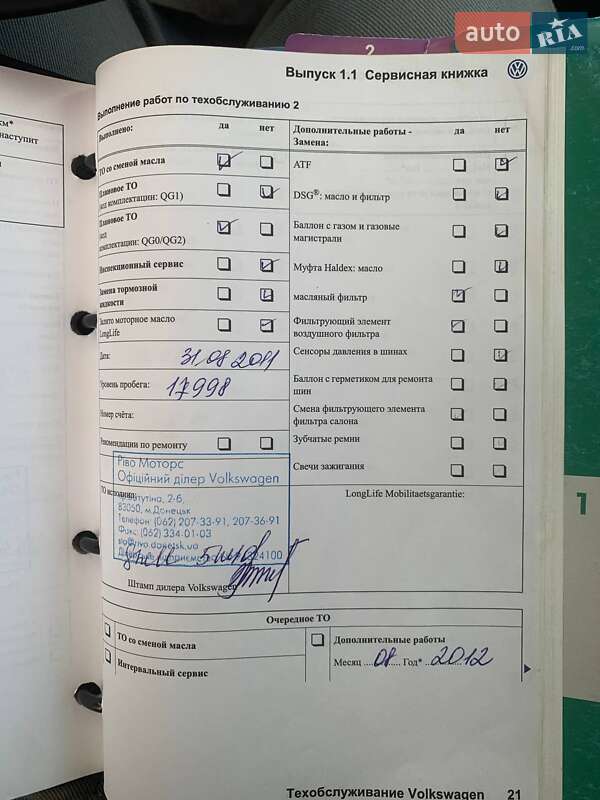 auto RIA.com
2
Выпуск 1.1 Сервисная книжка
км*
наступит
Выполнение работ по техобслуживанию 2
Выполнено: да нет
ТО со сменой масла
Плановое ТО
(код комплектации: QG1)
Плановое ТО
(код
комплектации: QG0/QG2)
Инспекционный сервис
Замена тормозной
жидкости
Залито моторное масло
LongLife
Дата: 31.08.2011
Уровень пробега: 17998
Номер счёта:
Рекомендации по ремонту
Дополнительные работы - да нет
Замена:
ATF
DSG®: масло и фильтр
Баллон с газом и газовые
магистрали
Муфта Haldex: масло
масляный фильтр
Фильтрующий элемент
воздушного фильтра
Сенсоры давления в шинах
Баллон с герметиком для ремонта
шин
Смена фильтрующего элемента
фильтра салона
Зубчатые ремни
Свечи зажигания
ТО исполнил:
Ріво Моторс
Офіційний ділер Volkswagen
83050, м.Донецьк
Телефон: (062) 207-33-91, 207-36-91
Факс: (062) 334-01-03
24100
Штамп дилера Volkswagen
LongLife Mobilitaetsgarantie:
1
Очередное ТО
ТО со сменой масла
Интервальный сервис
Дополнительные работы
Месяц ....08.... Год* ..2012
Техобслуживание Volkswagen 21